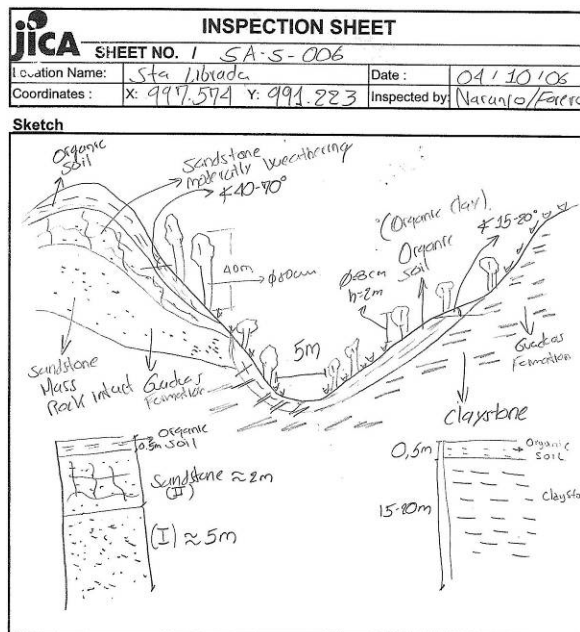 JICA
INSPECTION SHEET
SHEET NO. 1 SA-S-006
Location Name: Sta Librada Date : 04/10/06
Coordinates : X: 997.574 Y: 991.223 Inspected by: Naranjo/Forero
Sketch
Organic
Soil
Sandstone
moderatly weathering
∢40-70°
40m
Ø80cm
(Organic Clay).
Organic
soil
∢15-20°
Ø=8cm
h=2m
5m
Sandstone
Mass
Rock intact
Guaduas
Formation
Guaduas
Formation
Claystone
Organic
0,5m Soil
Sandstone ≈ 2m
(II)
(I) ≈ 5m
0,5m
Organic
SOIL
15-20m